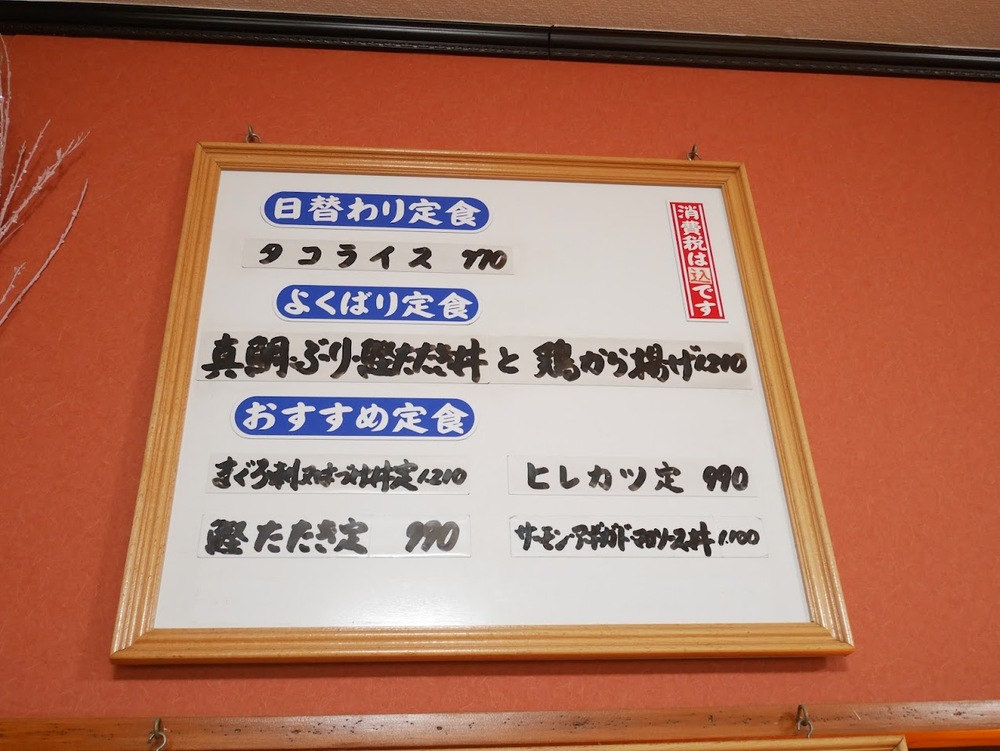 日替わり定食
タコライス 770
よくばり定食
真鯛・ぶり・鰹たたき丼と鶏から揚げ1210
おすすめ定食
まぐろ刺又はづけ丼定1.210
ヒレカツ定 990
鰹たたき定 990
サーモン・アボカド・マヨソース丼 1.100
消費税は込です